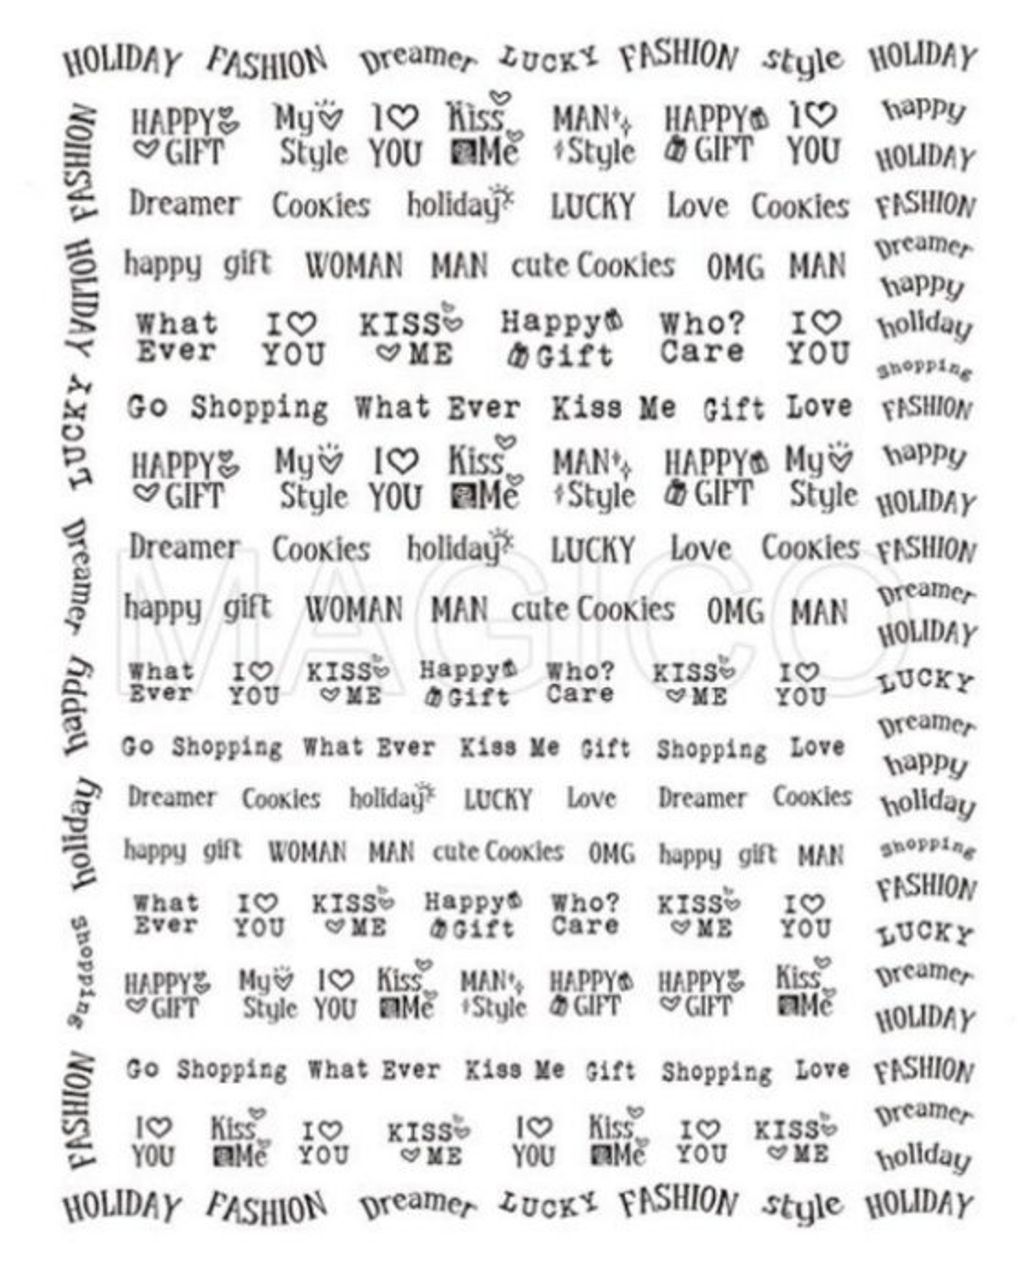 HOLIDAY FASHION Dreamer LUCKY FASHION style HOLIDAY
HAPPY My I♡ Kiss MAN HAPPY I♡
♡GIFT Style YOU Me Style GIFT YOU
Dreamer Cookies holiday LUCKY Love Cookies
happy gift WOMAN MAN cute Cookies OMG MAN
What I♡ KISS Happy Who? I♡
Ever YOU ♡ME Gift Care YOU
Go Shopping What Ever Kiss Me Gift Love
HAPPY My I♡ Kiss MAN HAPPY My
♡GIFT Style YOU Me Style GIFT Style
Dreamer Cookies holiday LUCKY Love Cookies
happy gift WOMAN MAN cute Cookies OMG MAN
What I♡ KISS Happy Who? KISS I♡
Ever YOU ♡ME Gift Care ♡ME YOU
Go Shopping What Ever Kiss Me Gift Shopping Love
Dreamer Cookies holiday LUCKY Love Dreamer Cookies
happy gift WOMAN MAN cute Cookies OMG happy gift MAN
What I♡ KISS Happy Who? KISS I♡
Ever YOU ♡ME Gift Care ♡ME YOU
HAPPY My I♡ Kiss MAN HAPPY HAPPY Kiss
♡GIFT Style YOU Me Style GIFT ♡GIFT Me
Go Shopping What Ever Kiss Me Gift Shopping Love
I♡ Kiss I♡ KISS I♡ Kiss I♡ KISS
YOU Me YOU ♡ME YOU Me YOU ♡ME
HOLIDAY FASHION Dreamer LUCKY FASHION style HOLIDAY
FASHION
HOLIDAY
LUCKY
Dreamer
happy
holiday
shopping
FASHION
happy
HOLIDAY
FASHION
Dreamer
happy
holiday
Shopping
FASHION
happy
HOLIDAY
FASHION
Dreamer
HOLIDAY
LUCKY
Dreamer
happy
holiday
Shopping
FASHION
LUCKY
Dreamer
HOLIDAY
FASHION
Dreamer
holiday
MAGICO